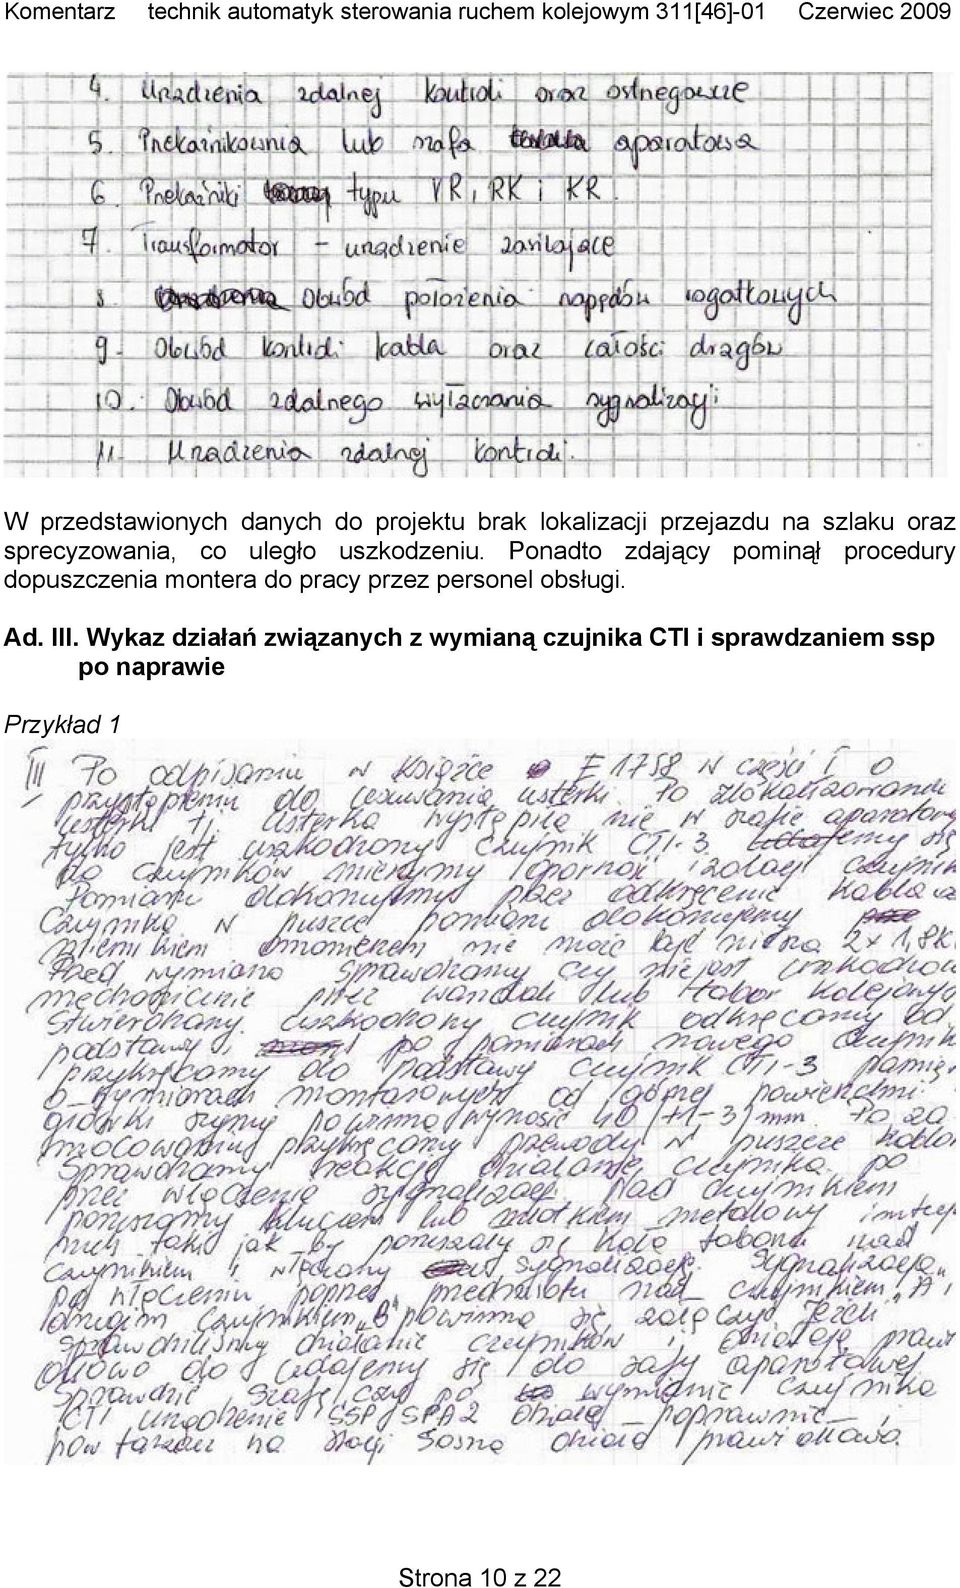 Komentarz technik automatyk sterowania ruchem kolejowym 311[46]-01 Czerwiec 2009
4. Urządzenia zdalnej kontroli oraz ostrzegawcze
5. Przekaźnikownia lub szafa aparatowa
6. Przekaźniki typu VR, RK i KR.
7. Transformator – urządzenie zasilające
8. Obwód położenia napędów rogatkowych
9. Obwód kontroli kabla oraz całości drągów
10. Obwód zdalnego wyłączania sygnalizacji
11. Urządzenia zdalnej kontroli.
W przedstawionych danych do projektu brak lokalizacji przejazdu na szlaku oraz
sprecyzowania, co uległo uszkodzeniu. Ponadto zdający pominął procedury
dopuszczenia montera do pracy przez personel obsługi.
Ad. III. Wykaz działań związanych z wymianą czujnika CTI i sprawdzaniem ssp
po naprawie
Przykład 1
III Po odpisaniu w książce E 1758 w części I o
przystąpieniu do usuwania usterki. Po zlokalizowaniu
usterki tj. usterka wystąpiła nie w szafie aparatowej
tylko jest uszkodzony czujnik CTI-3. udajemy się
do czujników mierzymy oporność izolacji czujnik
Pomiaru dokonujemy przez odkręcenie kabla
czujnika w puszce pomiaru dokonujemy
omomierzem nie może być niższa 2x1,8K
Przed wymianą sprawdzamy czy nie jest uszkodzony
mechanicznie przez wandali lub tabor kolejowy
Stwierdzamy. uszkodzony czujnik odkręcamy od
podstawy i po pomiarach nowego czujnik
przykręcamy do podstawy czujnik CTI-3
o wymiarach montażowych od górnej powierzchni
główki szyny powinna wynosić 40 /+/-3/mm. Po za
mocowaniu przykręcamy przewody w puszce kablo
Sprawdzamy reakcję działanie czujnika. po
przez włączenie sygnalizacji. Nad czujnikiem
poruszamy kluczem lub młotkiem metalowy
ruch taki jak by poruszały się koła taboru nad
czujnikiem i włączamy sygnalizację. Sygnalizacja
po wjęciu poprzez przedmiotu nad czujnikiem „A i
drugim czujnikiem „B" powinna się załączyć. Jeżeli
sprawdziliśmy działanie czujników i działają prawi
dłowo to udajemy się do szafy aparatowej
Sprawdzić szafę czy po wymianie czujnika
CTI urządzenie SSP SPA2 działa poprawnie i
powtarzacz na stacji Sosna działa prawidłowo.
Strona 10 z 22